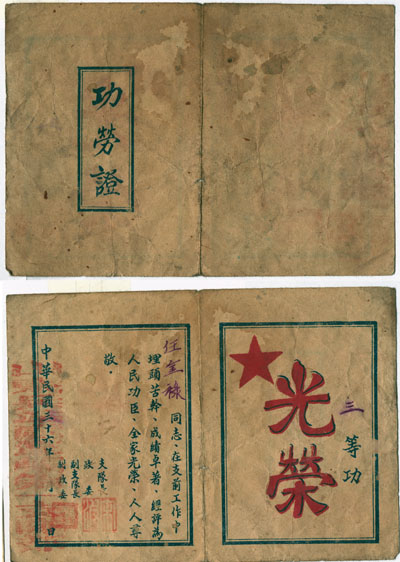 功勞證
三等功
光榮
任 祿同志、在支前工作中
埋頭苦幹、成績卓著、經評為
人民功臣、全家光榮、人人尊
敬
支隊長
政委
副支隊長
副政委
中華民國三十六年 月 日